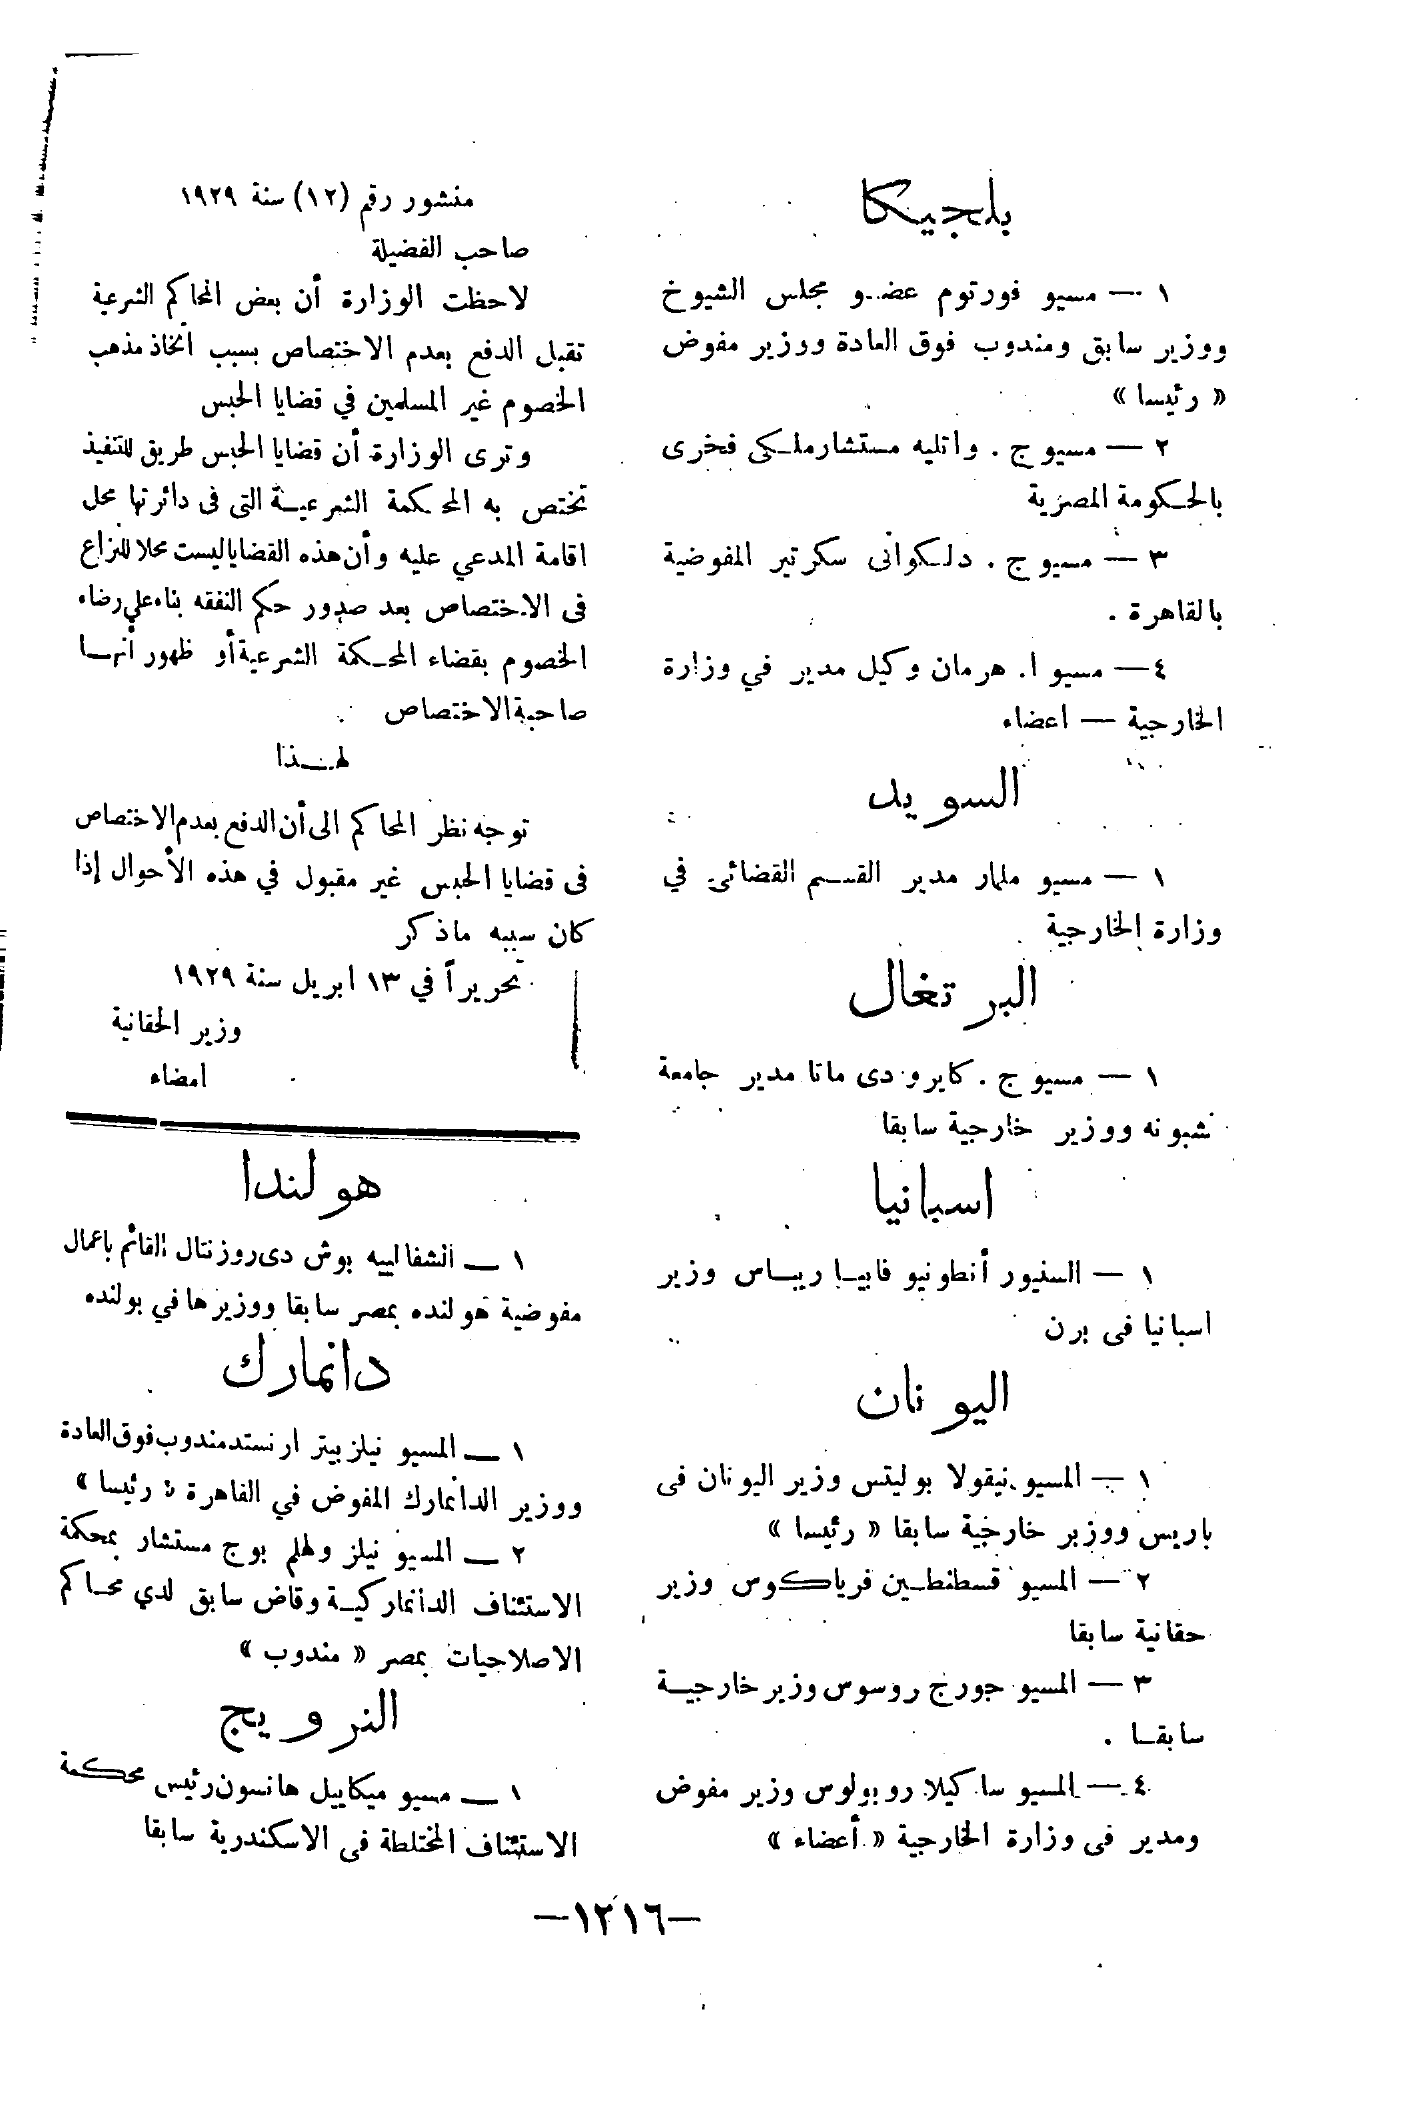 بلجيكا
١ — مسيو فورتوم عضو مجلس الشيوخ
ووزير سابق ومندوب فوق العادة ووزير مفوض
« رئيسا »
٢ — مسيو ج . واتليه مستشار ملكي فخرى
بالحكومة المصرية
٣ — مسيو ج . دلكوانى سكرتير المفوضية
بالقاهرة .
٤ — مسيو ا. هرمان وكيل مدير في وزارة
الخارجية — اعضاء
السويد
١ — مسيو ملمار مدير القسم القضائى في
وزارة الخارجية
البرتغال
١ — مسيو ج . كايرو دى ماتا مدير جامعة
شبونه ووزير خارجية سابقا
اسبانيا
١ — السنيور أنطونيو فابيا ريباس وزير
اسبانيا فى برن
اليونان
١ — المسيو نيقولا بوليتس وزير اليونان فى
باريس ووزير خارجية سابقا « رئيسا »
٢ — المسيو قسطنطين فرياكوس وزير
حقانية سابقا
٣ — المسيو جورج روسوس وزير خارجية
سابقا .
٤ — المسيو ساكيلاروبولوس وزير مفوض
ومدير فى وزارة الخارجية « أعضاء »
منشور رقم (١٢) سنة ١٩٢٩
صاحب الفضيلة
لاحظت الوزارة أن بعض المحاكم الشرعية
تقبل الدفع بعدم الاختصاص بسبب اتخاذ مذهب
الخصوم غير المسلمين في قضايا الحبس
وترى الوزارة أن قضايا الحبس طريق للتنفيذ
تختص به المحكمة الشرعية التى فى دائرتها محل
اقامة المدعي عليه وأن هذه القضايا ليست محلا للنزاع
فى الاختصاص بعد صدور حكم النفقه بناء علي رضاء
الخصوم بقضاء المحكمة الشرعية أو ظهور أنها
صاحبة الاختصاص
لهذا
توجه نظر المحاكم الى أن الدفع بعدم الاختصاص
فى قضايا الحبس غير مقبول في هذه الأحوال إذا
كان سببه ماذكر
تحريراً في ١٣ ابريل سنة ١٩٢٩
وزير الحقانية
امضاء
هولندا
١ — الشفالييه بوش دى روزنتال القائم باعمال
مفوضية هولنده بمصر سابقا ووزيرها في بولنده
دانمارك
١ — المسيو نيلز بيتر ارنستد مندوب فوق العادة
ووزير الدانمارك المفوض في القاهرة « رئيسا »
٢ — المسيو نيلز ولهلم بوج مستشار بمحكمة
الاستئناف الدانماركية وقاض سابق لدي محاكم
الاصلاحيات بمصر « مندوب »
النرويج
١ — مسيو ميكاييل هانسون رئيس محكمة
الاستئناف المختلطة فى الاسكندرية سابقا
—١٢١٦—